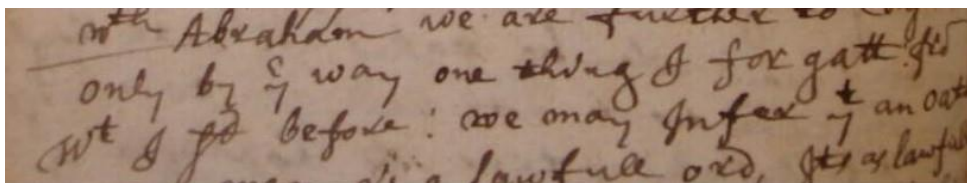 wth Abraham we are further to
only by ye way one thing I forgatt
Wt I sd before: we may Infer yt an oath
is a lawfull ord, Its as lawfull